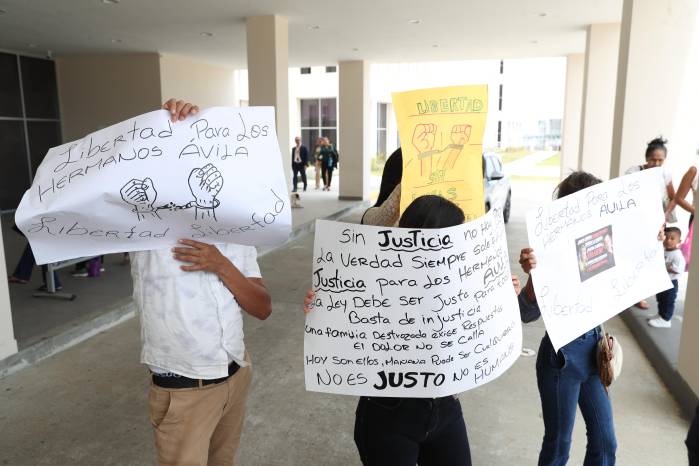 Libertad Para Los
HERMANOS ÁVILA
Libertad Libertad
LIBERTAD
SIN JUSTICIA NO HAY
LA VERDAD SIEMPRE SALE
JUSTICIA PARA LOS HERMANOS AVILA
LA LEY DEBE SER JUSTA PARA
BASTA DE INJUSTICIA
UNA FAMILIA DESTROZADA EXIGE RESPUESTAS
EL DOLOR NO SE CALLA
HOY SON ELLOS, MAÑANA PUEDE SER CUALQUIERA
NO ES JUSTO NO ES
HUMANO
Libertad Para Los
HERMANOS ÁVILA
Libertad